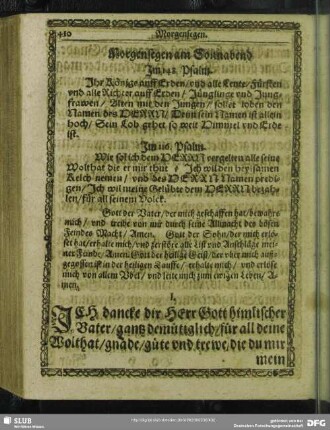 410 Morgensegen.
Morgensegen am Sonnabend
Im 148. Psalm.
Ihr Könige auff Erden / vnd alle Leute / Fürsten
vnd alle Richter auff Erden / Jünglinge vnd Jung-
frawen / Alten mit den Jungen / sollet loben den
Namen des HERRN / Denn sein Namen ist allein
hoch / Sein Lob gehet so weit Himmel vnd Erde
ist.
Im 116. Psalm.
Wie sol ich dem HERRN vergelten alle seine
Wolthat die er mir thut / Ich wil den heylsamen
Kelch nemen / vnd des HERRN Namen predi-
gen / Ich wil meine Gelübde dem HERRN bezah-
len / für all seinem Volck.
Gott der Vater / der mich geschaffen hat / bewahre
mich / vnd treibe von mir durch seine Allmacht des bösen
Feindes Macht / Amen. Gott der Sohn / der mich erlö-
set hat / erhalte mich / vnd zerstöre alle List vnd Anschläge mei-
ner Feinde / Amen. Gott der heilige Geist / der vber mich auß-
gegossen ist in der heiligen Tauffe / erhalte mich / vnd erlöse
mich von allem Vbel / vnd leite mich zum ewigen Leben / A-
men.
I.
ICH dancke dir Herr Gott himlischer
Vater / gantz demütiglich / für all deine
Wolthat / gnade / güte vnd trewe, die du mir
mein
SLUB
DFG